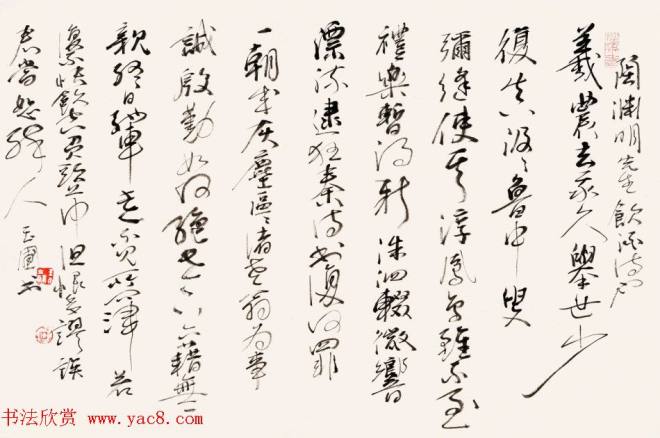 陶淵明先生飲酒詩
羲農去我久舉世少
復真汲汲魯中叟
彌縫使其淳鳳鳥雖不至
禮樂暫得新洙泗輟微響
漂流逮狂秦詩書復何罪
一朝成灰塵區區諸老翁為事
誠殷勤如何絕世下六籍無一
親終日馳車走不見所問津若
復不快飲空負頭上巾但恨多謬誤
君當恕醉人
书法欣赏 www.yac8.com